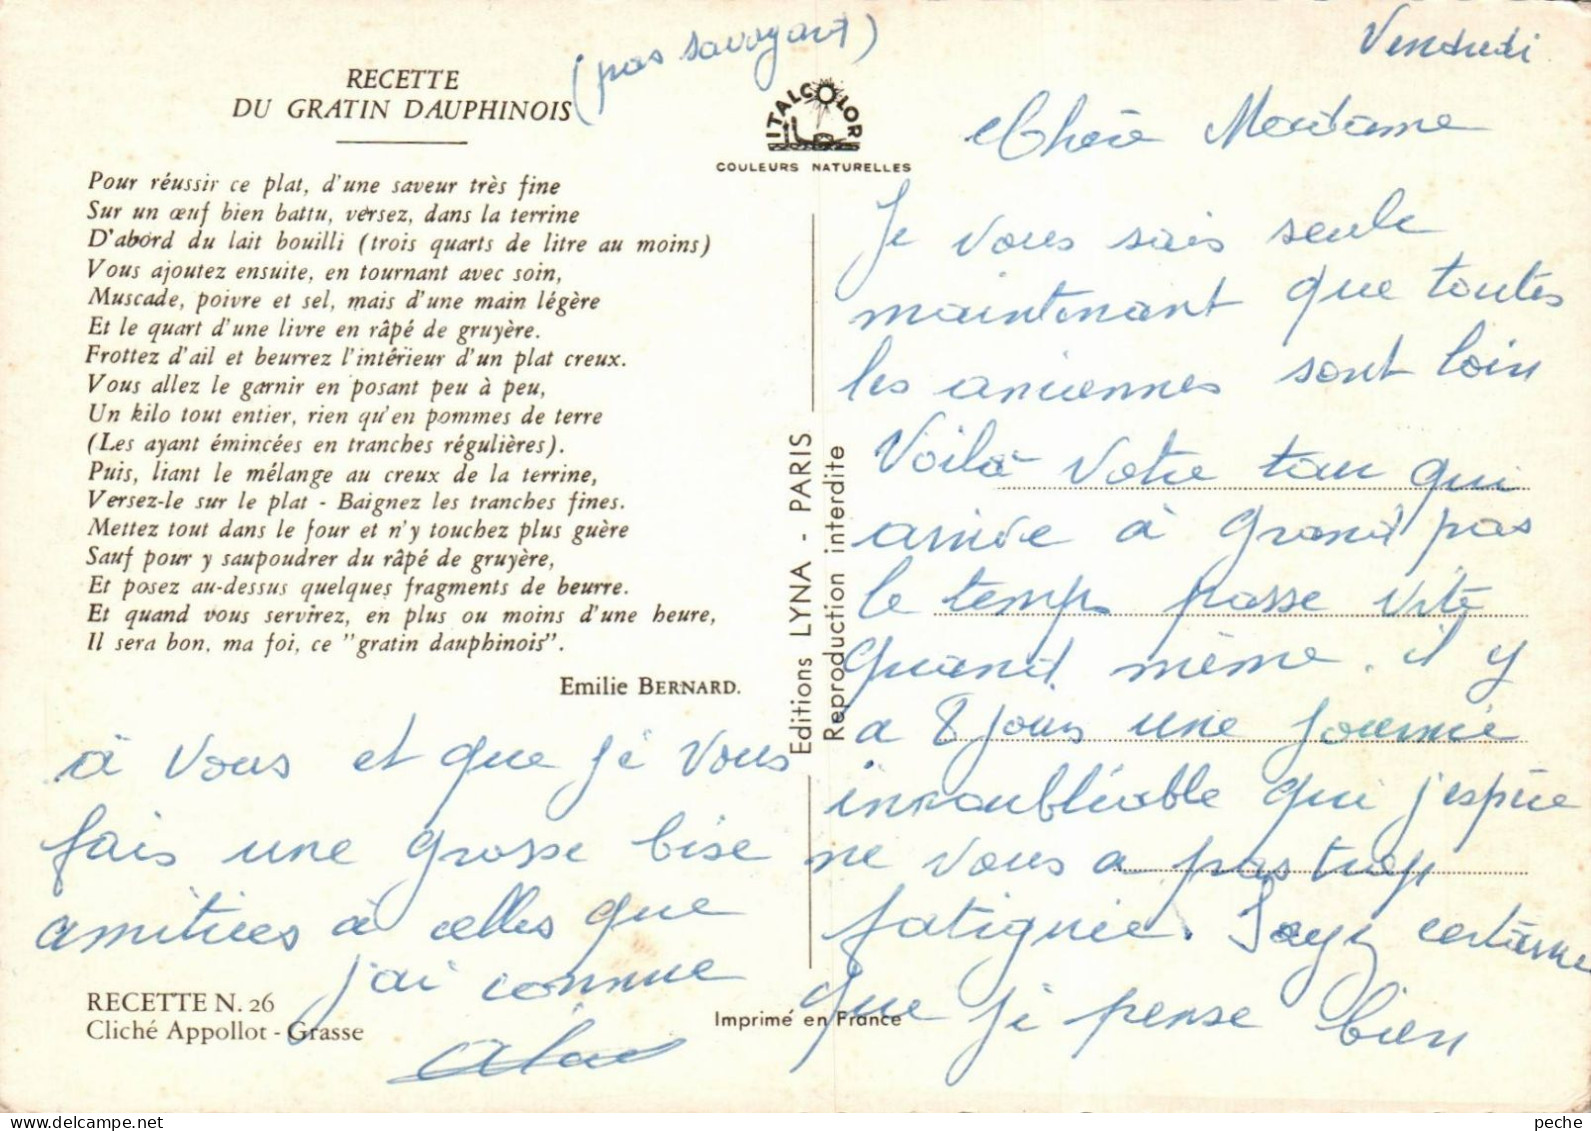 (pas savoyard)
RECETTE
DU GRATIN DAUPHINOIS
Pour réussir ce plat, d'une saveur très fine
Sur un œuf bien battu, versez, dans la terrine
D'abord du lait bouilli (trois quarts de litre au moins)
Vous ajoutez ensuite, en tournant avec soin,
Muscade, poivre et sel, mais d'une main légère
Et le quart d'une livre en râpé de gruyère.
Frottez d'ail et beurrez l'intérieur d'un plat creux.
Vous allez le garnir en posant peu à peu,
Un kilo tout entier, rien qu'en pommes de terre
(Les ayant émincées en tranches régulières).
Puis, liant le mélange au creux de la terrine,
Versez-le sur le plat - Baignez les tranches fines.
Mettez tout dans le four et n'y touchez plus guère
Sauf pour y saupoudrer du râpé de gruyère,
Et posez au-dessus quelques fragments de beurre.
Et quand vous servirez, en plus ou moins d'une heure,
Il sera bon, ma foi, ce "gratin dauphinois".
Emilie BERNARD.
ITALCOLOR
COULEURS NATURELLES
Editions LYNA - PARIS
Reproduction interdite
Vendredi
Chère Madame
Je vous sais seule
maintenant que toutes
les anciennes sont loin
Voilà votre tour qui
arrive à grand pas
le temps passe vite
quand même. il y
a 8 jours une journée
inoubliable qui j'espère
ne vous a pas trop
fatiguée. Soyez certaine
que je pense bien
à vous et que je vous
fais une grosse bise
amitiées à celles que
j'ai connue
RECETTE N. 26
Cliché Appollot - Grasse
Imprimé en France
peche